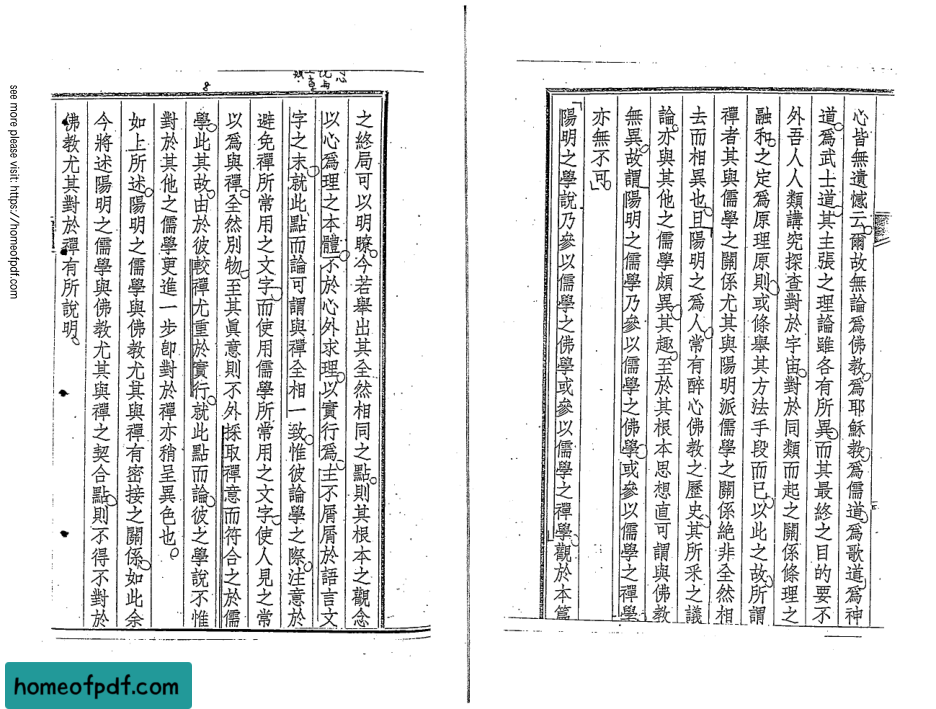 心皆無遺憾云爾故無論爲佛教爲耶穌教爲儒道爲歌道爲神
道爲武士道其主張之理論雖各有所異而其最終之目的要不
外吾人人類講究探查對於宇宙對於同類而起之關係條理之
融和之定爲原理原則或條舉其方法手段而已以此之故所謂
禪者其與儒學之關係尤其與陽明派儒學之關係絶非全然相
去而相異也且陽明之爲人常有醉心佛教之歷史其所采之議
論亦與其他之儒學頗異其趣至於其根本思想直可謂與佛教
無異故謂陽明之儒學乃參以儒學之佛學或參以儒學之禪學
亦無不可
陽明之學說乃參以儒學之佛學或參以儒學之禪學觀於本篇
之終局可以明瞭今若舉出其全然相同之點則其根本之觀念
以心爲理之本體不於心外求理以實行爲主不屑屑於語言文
字之末就此點而論可謂與禪全相一致惟彼論學之際注意於
避免禪所常用之文字而使用儒學所常用之文字使人見之常
以爲與禪全然別物至其眞意則不外採取禪意而符合之於儒
學此其故由於彼較禪尤重於實行就此點而論彼之學說不惟
對於其他之儒學更進一步卽對於禪亦稍呈異色也
如上所述陽明之儒學與佛教尤其與禪有密接之關係如此余
今將述陽明之儒學與佛教尤其與禪之契合點則不得不對於
佛教尤其對於禪有所說明
8
see more please visit: https://homeofpdf.com
homeofpdf.com